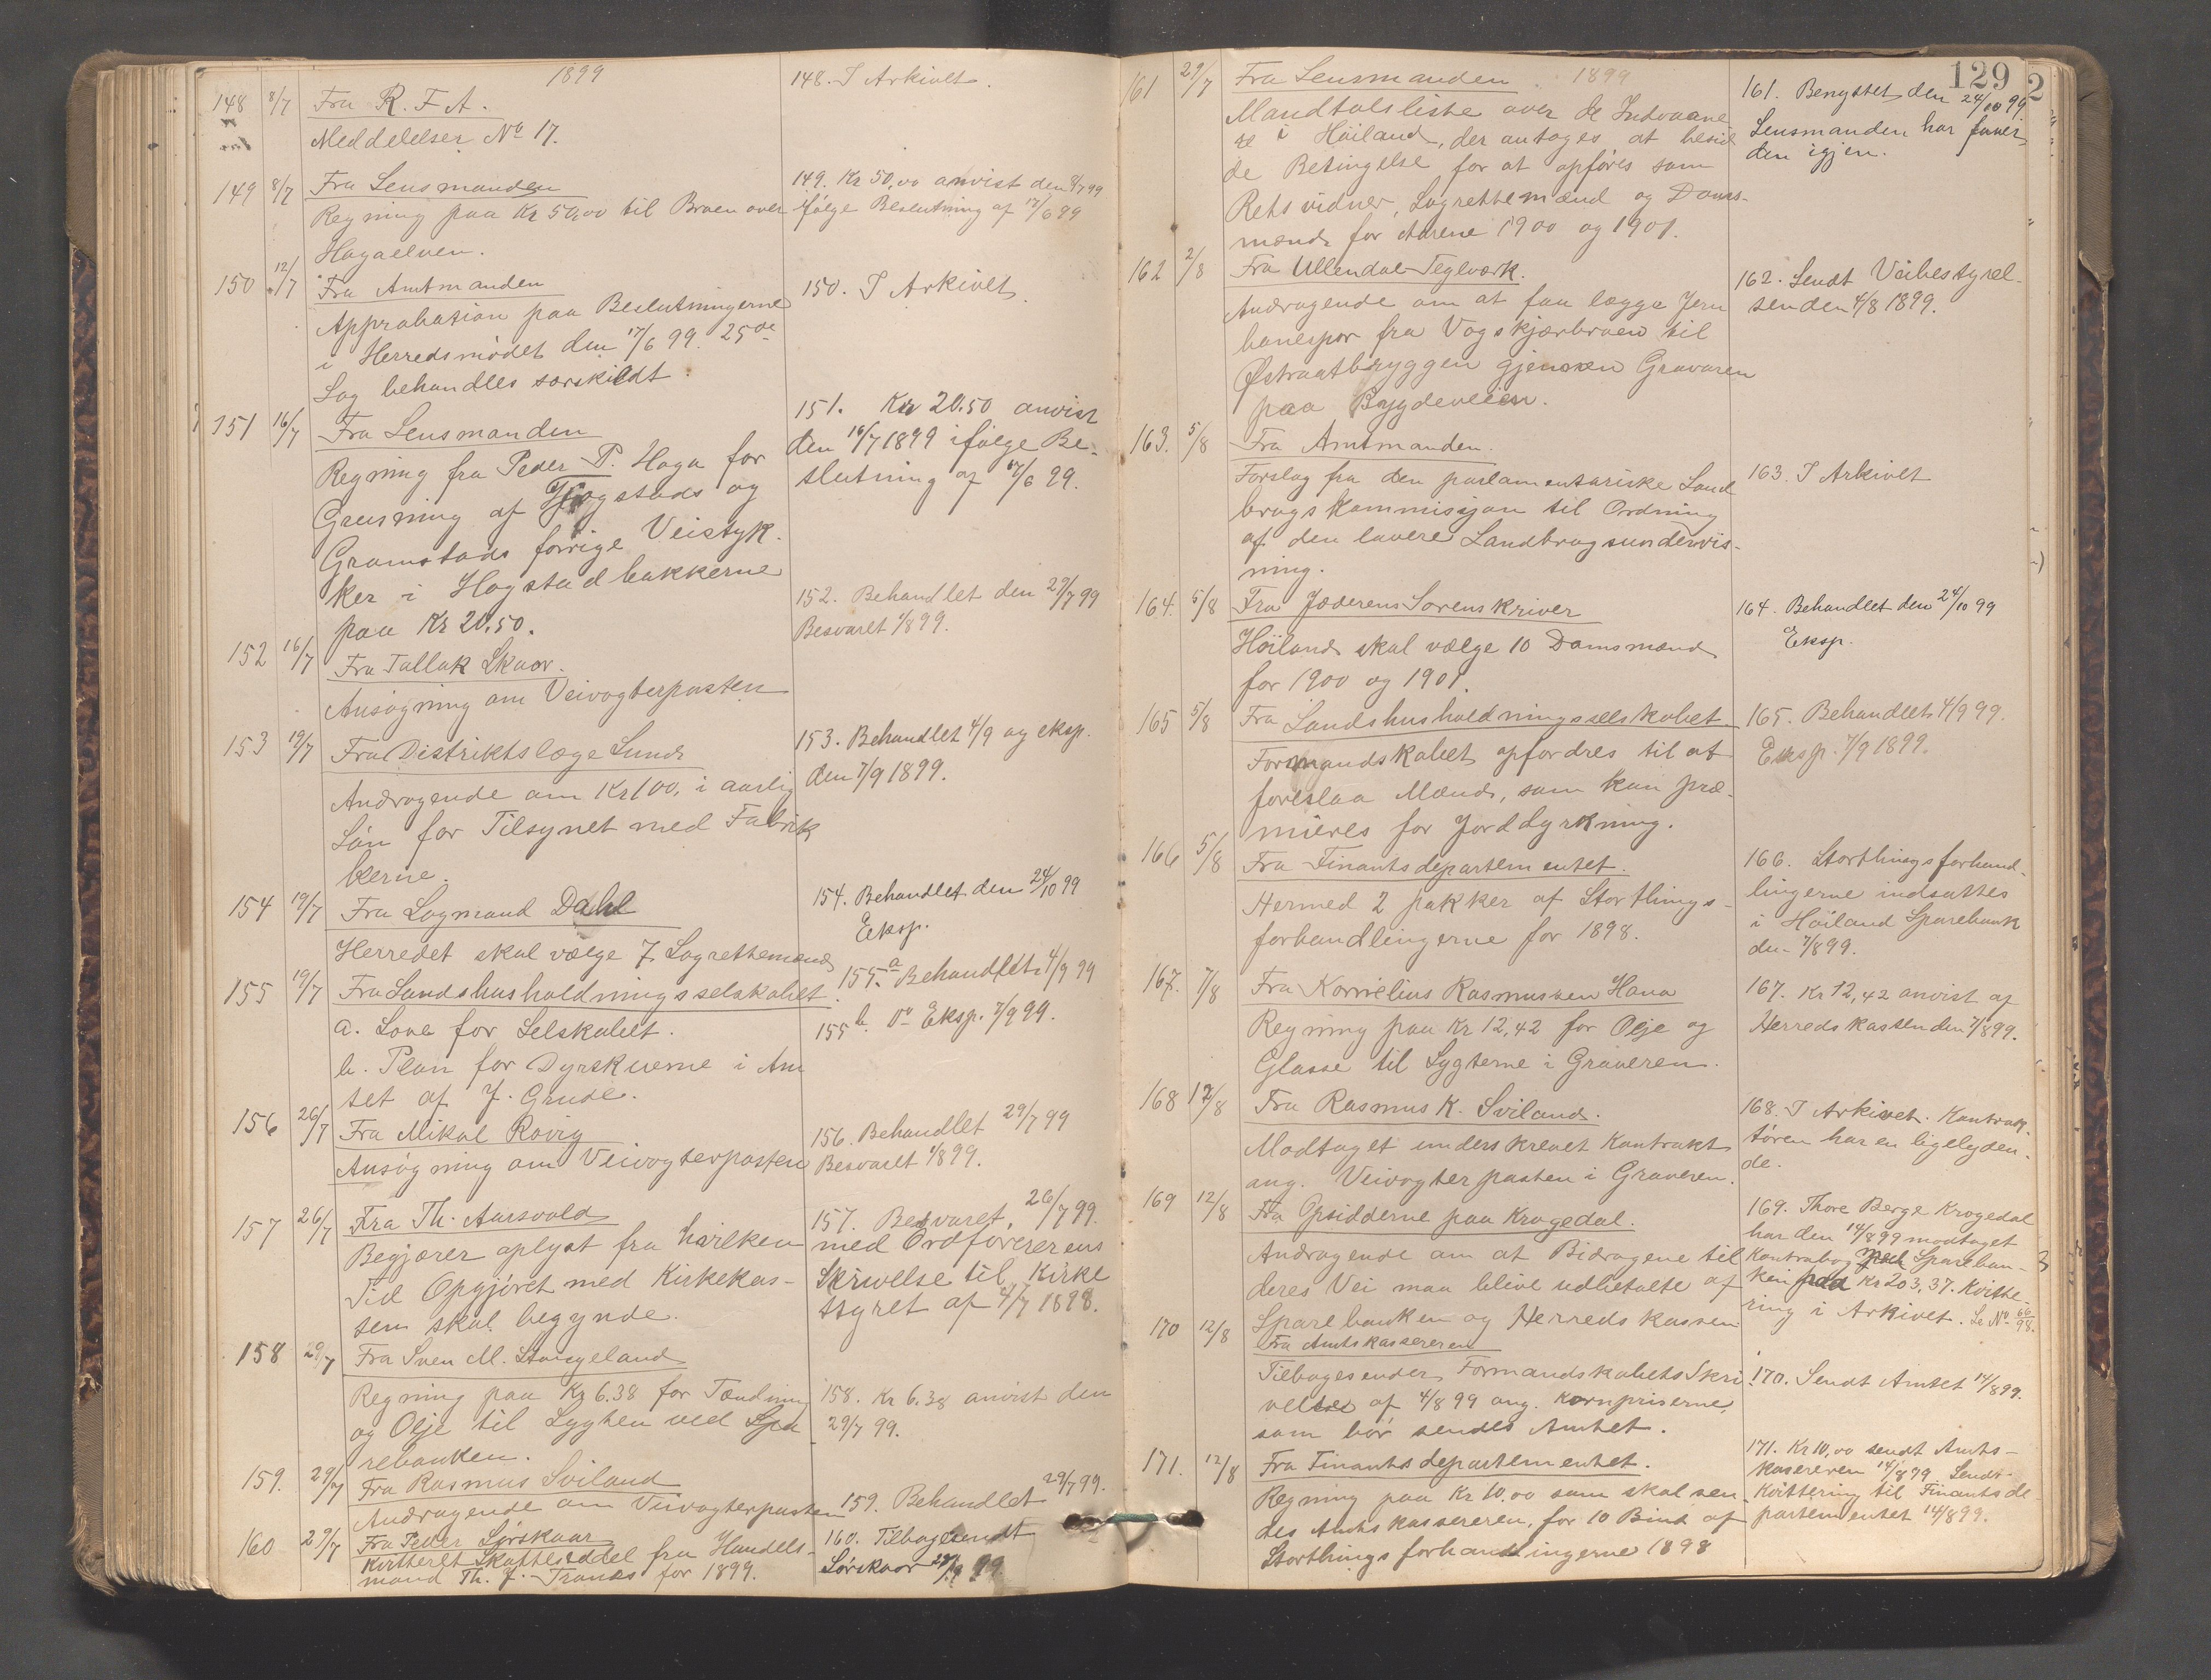 1899
148 8/7 Fra R. F. A.
Meddelelser No 17.
148. I Arkivet.
149 8/7 Fra Lensmanden
Regning paa Kr 50,00 til Broen over
Hagaelven.
149. Kr 50,00 anvist den 8/7 99
ifølge Beslutning af 17/6 99
150 12/7 Fra Amtmanden
Approbation paa Beslutningerne
i Herredsmødet den 17/6 99. 25de
Sag behandles særskildt.
150. I Arkivet
151 16/7 Fra Lensmanden
Regning fra Peder P. Haga for
Grusning af Hogstads og
Gramstads forrige Veistyk-
ker i Hogstadbakkerne
paa Kr 20.50.
151. Kr 20.50 anvist
den 16/7 1899 ifølge Be-
slutning af 17/6 99.
152 16/7 Fra Tallak Skaar.
Ansøgning om Veivogterposten
152. Behandlet den 29/7 99
Besvaret 1/8 99.
153 19/7 Fra Distriktslæge Lund
Andragende om Kr 100, i aarlig
Løn for Tilsynet med Fabrik
kerne.
153. Behandlet 4/9 og eksp.
den 7/9 1899.
154 19/7 Fra Lagmand Dahl
Herredet skal vælge 7 Lagrettemænd
154. Behandlet den 24/10 99
Eksp.
155 19/7 Fra Landshusholdningsselskabet.
a. Love for Selskabet.
b. Plan for Dyrskuerne i Am
tet af J. Grude.
155a. Behandlet 4/9 99
155b. Do Eksp. 7/9 99.
156 26/7 Fra Mikal Rovig
Ansøgning om Veivogterposten
156. Behandlet 29/7 99
Besvaret 1/8 99.
157 26/7 Fra Th. Aarsvold
Begjærer oplyst fra hvilken
Tid Opgjøret med Kirkekas-
sen skal begynde.
157. Besvaret, 26/7 99.
med Ordførerens
Skrivelse til Kirke
tsyret af 4/7 1898.
158 29/7 Fra Sven M. Stangeland
Regning paa Kr 6.38 for Tænding
og Olje til Lygten ved Spa
rebanken.
158. Kr 6.38 anvist den
29/7 99.
159. 29/7 Fra Rasmus Sviland
Andragende om Veivogterposten
159. Behandlet 29/7 99.
160 29/7 Fra Peder Sørskaar
Kvitteret Skatteseddel fra Handels-
mand Th. J. Tranes for 1899.
160. Tilbagesendt
Sørskaar
129
1899
161 29/7 Fra Lensmanden
Mandtalsliste over de Indvaane
re i Høiland, der antages at besid
de Betingelse for at opføres som
Retsvidner, Lagrettemænd og Doms-
mænd for Aarene 1900 og 1901.
161. Benyttet den 24/10 99
Lensmanden har faaet
den igjen.
162 2/8 Fra Ullendal Teglværk.
Andragende om at faa lægge Jern
banespor fra Vagskjærbroen til
Østraatbryggen gjennem Gravaren
paa Bygdeveien.
162. Sendt Veibestyrel-
sen den 4/8 1899.
163. 5/8 Fra Amtmanden.
Forslag fra den parlamentariske Land
brugskommissjon til Ordning
af den lavere Landbrugsundervis-
ning.
163. I Arkivet
164. 5/8 Fra Jæderens Sorenskriver
Høiland skal vælge 10 Domsmænd
for 1900 og 1901.
164. Behandlet den 24/10 99
Eksp.
165 5/8 Fra Landshusholdningsselskabet
Formandskabet opfordres til at
foreslaa Mænd, som kan præ-
mieres for Jorddyrkning.
165. Behandlet 4/9 99.
Eksp. 7/9 1899.
166 5/8 Fra Finantsdepartementet.
Hermed 2 pakker af Storthings-
forhandlingerne for 1898.
166. Storthingsforhand-
lingerne indsattes
i Høiland Sparebank
den 7/8 99.
167. 7/8 Fra Kornelius Rasmussen Hana
Regning paa Kr 12,42 for Olje og
Glasse til Lygterne i Graveren.
167. Kr 12,42 anvist af
Herredskassen den 7/8 99.
168 12/8 Fra Rasmus K. Sviland.
Modtaget underskrevet Kontrakt
ang. Veivogterposten i Graveren.
168. I Arkivet. Kontrak-
tøren har en ligelyden-
de.
169 12/8 Fra Opsidderne paa Krogedal.
Andragende om at Bidragene til
deres Vei maa blive udbetalte af
Sparebanken og Herredskassen
169. Thore Berge Krogedal
har den 14/8 99 modtaget
Kontrabog Spareban-
ken paa Kr 203,37. Kvitte-
ring i Arkivet. Se No 66/98.
170 12/8 Fra Amtskassereren
Tilbagesender Formandskabets Skri
velse af 4/8 99 ang. Kornpriserne,
som bør sendes Amtet.
170. Sendt Amtet 14/8 99.
171. 12/8 Fra Finantsdepartementet.
Regning paa Kr 10,00 som skal sen
des Amtskassereren, for 10 Bind af
Storthingsforhandlingerne 1898
171. Kr 10,00 sendt Amts-
kasereren 14/8 99. Sendt
Kvittering til Finantsde-
partementet 14/8 99.